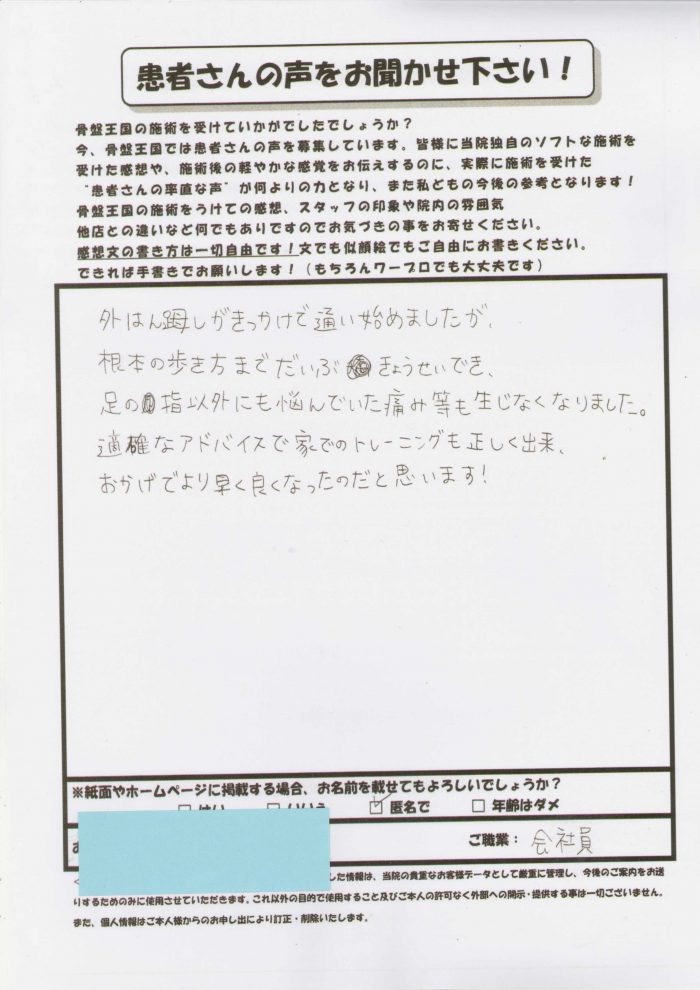 患者さんの声をお聞かせ下さい！
骨盤王国の施術を受けていかがでしたでしょうか？
今、骨盤王国では患者さんの声を募集しています。皆様に当院独自のソフトな施術を
受けた感想や、施術後の軽やかな感覚をお伝えするのに、実際に施術を受けた
"患者さんの率直な声"が何よりの力となり、また私どもの今後の参考となります！
骨盤王国の施術をうけての感想、スタッフの印象や院内の雰囲気
他店との違いなど何でもありですのでお気づきの事をお寄せください。
感想文の書き方は一切自由です！文でも似顔絵でもご自由にお書きください。
できれば手書きでお願いします！（もちろんワープロでも大丈夫です）
外はん踇しがきっかけで通い始めましたが、
根本の歩き方までだいぶ きょうせいでき、
足の 指以外にも悩んでいた痛み等も生じなくなりました。
適確なアドバイスで家でのトレーニングも正しく出来、
おかげでより早く良くなったのだと思います！
※紙面やホームページに掲載する場合、お名前を載せてもよろしいでしょうか？
□ はい □ いいえ ☑ 匿名で □ 年齢はダメ
お
ご職業： 会社員
した情報は、当院の貴重なお客様データとして厳重に管理し、今後のご案内をお送
りするためのみに使用させていただきます。これ以外の目的で使用すること及びご本人の許可なく外部への開示・提供する事は一切ございません。
また、個人情報はご本人様からのお申し出により訂正・削除いたします。